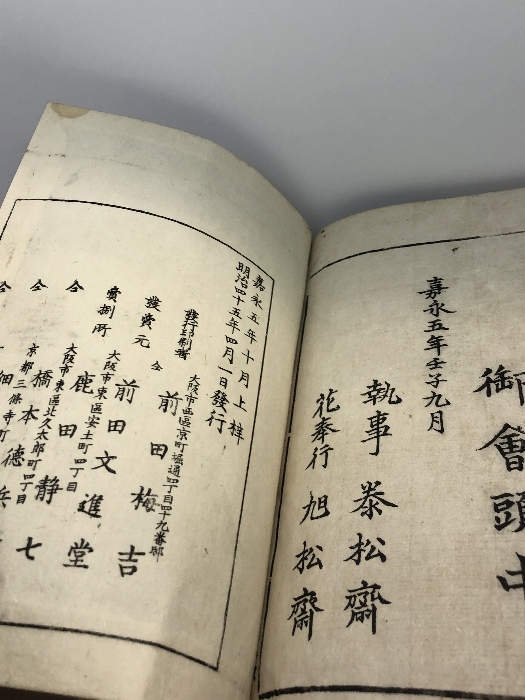 御會頭中
嘉永五年壬子九月
執事 泰松齋
花奉行 旭松齋
嘉永五年十月上梓
明治四十五年四月一日發行
大阪市西區京町堀通四丁目四十九番邸
發行印刷者 前田梅吉
發賣元 仝
大阪市東區安土町四丁目
賣捌所 前田文進堂
大阪市東區北久太郎町四丁目
仝 鹿田靜七
京都三條寺町
仝 橋本德兵
仝 細